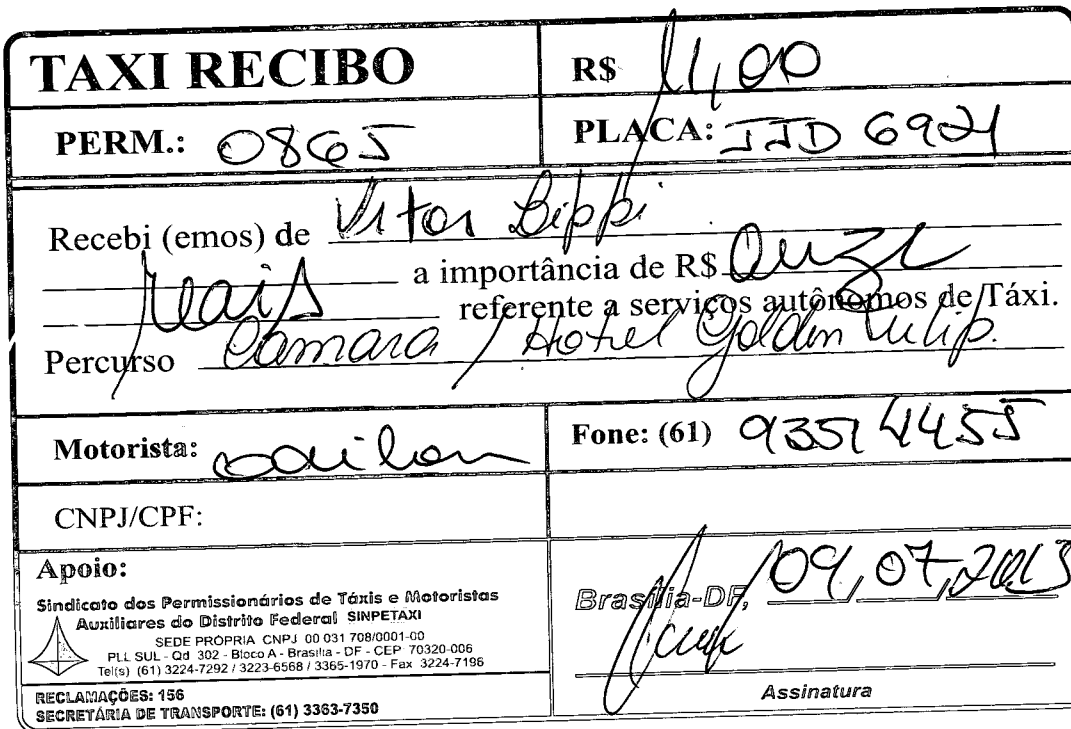 TAXI RECIBO
R$ 11,00
PERM.: 0865
PLACA: JJD 6921
Recebi (emos) de Vitor Lippi
reais a importância de R$ Onze
referente a serviços autônomos de Táxi.
Percurso Câmara / Hotel Golden Tulip.
Motorista: Odilon
Fone: (61) 9357 4455
CNPJ/CPF:
Apoio:
Sindicato dos Permissionários de Táxis e Motoristas
Auxiliares do Distrito Federal SINPETAXI
SEDE PRÓPRIA CNPJ 00 031 708/0001-00
PLL SUL - Qd 302 - Bloco A - Brasília - DF - CEP 70320-006
Tel(s) (61) 3224-7292 / 3223-6568 / 3365-1970 - Fax 3224-7196
RECLAMAÇÕES: 156
SECRETÁRIA DE TRANSPORTE: (61) 3363-7350
Brasília-DF, 09,07,2013
Assinatura